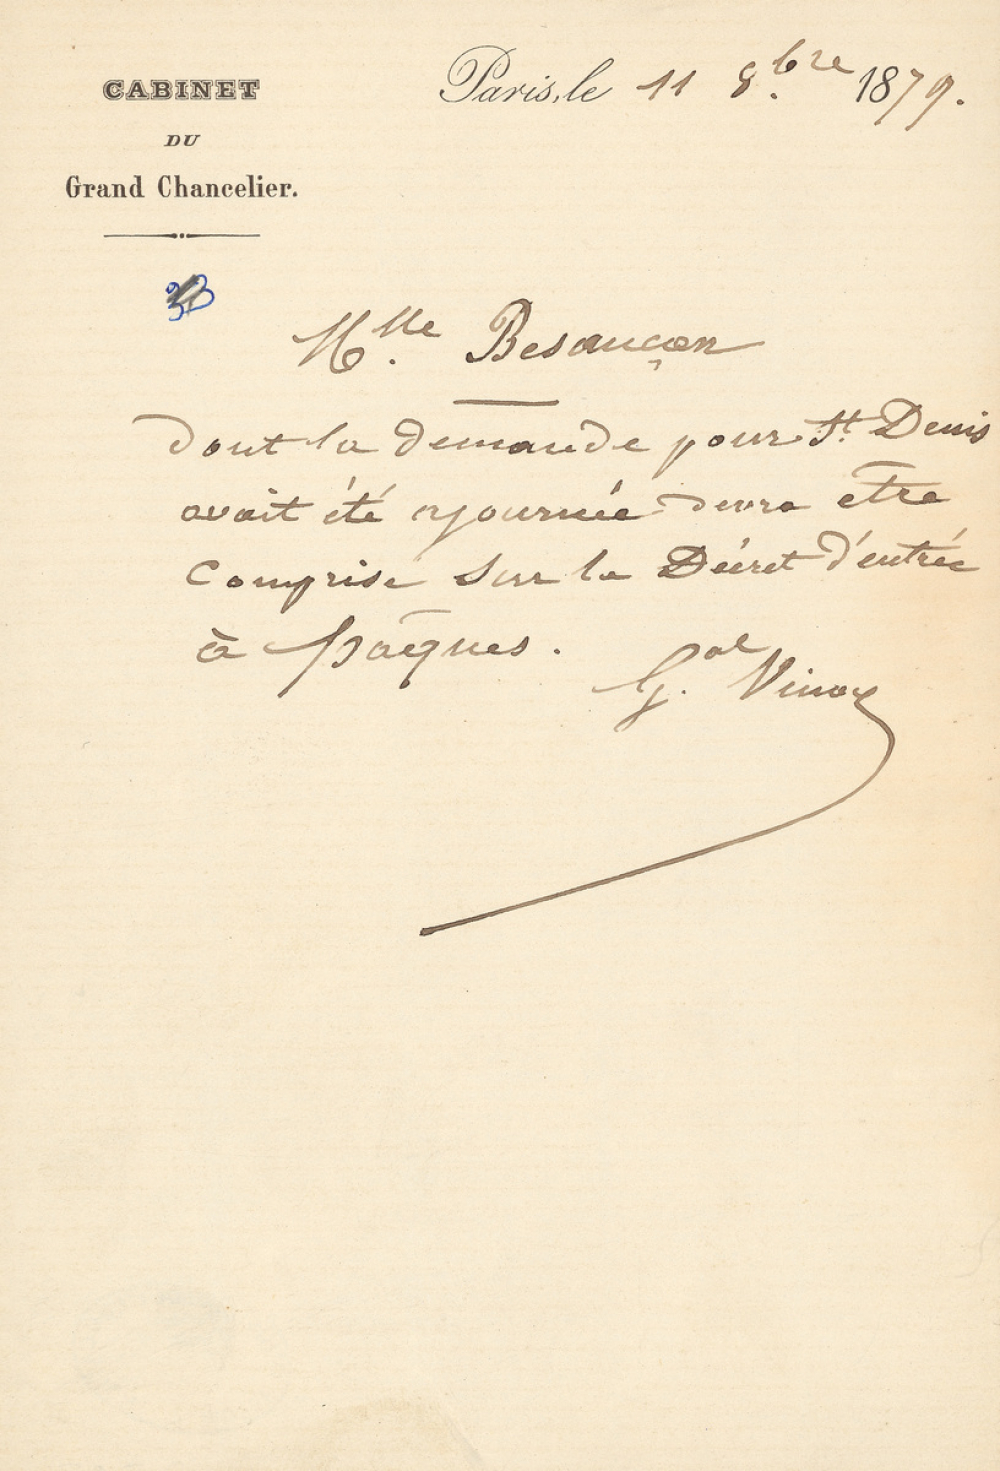 CABINET
DU
Grand Chancelier.
Paris, le 11 8.bre 1879.
Mlle. Besançon
dont la demande pour St. Denis
avait été ajournée devra être
comprise sur le Décret d'entrée
à Pâques.
Gal. Vinoy